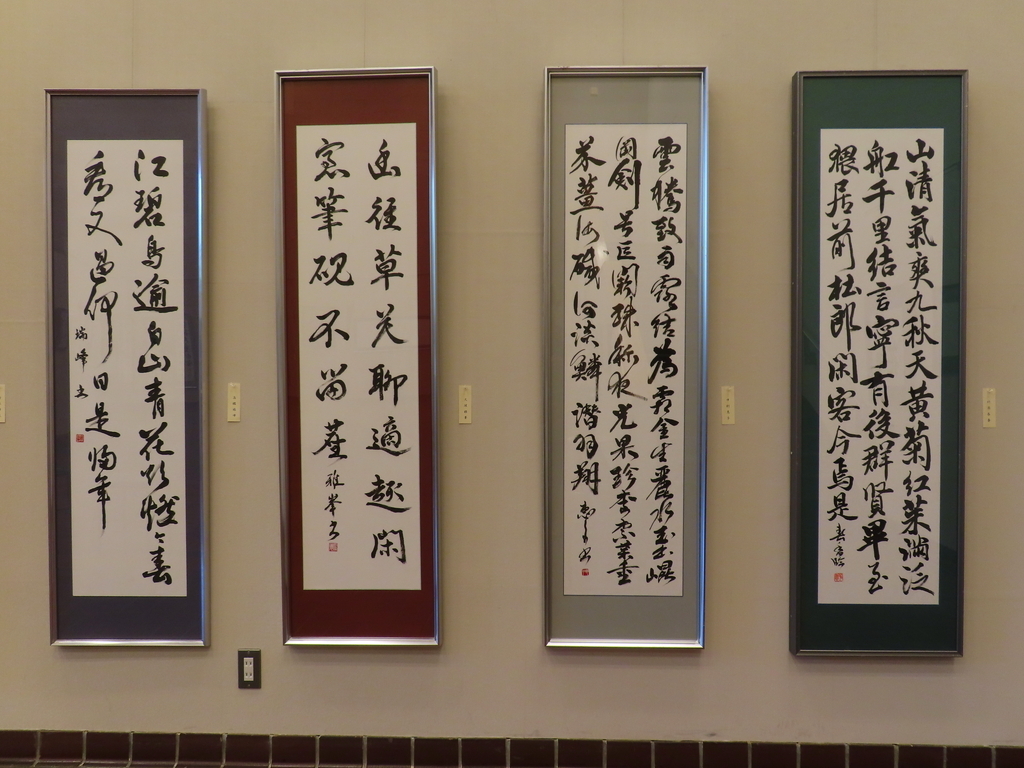 江碧鳥逾白山青花欲燃今春
看又過何日是帰年
瑞峰書
幽径草花聊適趣閑
窓筆硯不留塵
雅峯書
雲騰致雨露結為霜金生麗水玉出崐
岡劍号巨闕珠称夜光果珍李柰菜重
芥薑海鹹河淡鱗潜羽翔
山清氣爽九秋天黄菊紅茱満泛
船千里結言寧有後群賢畢至
猥居前杜郎閑客今焉是